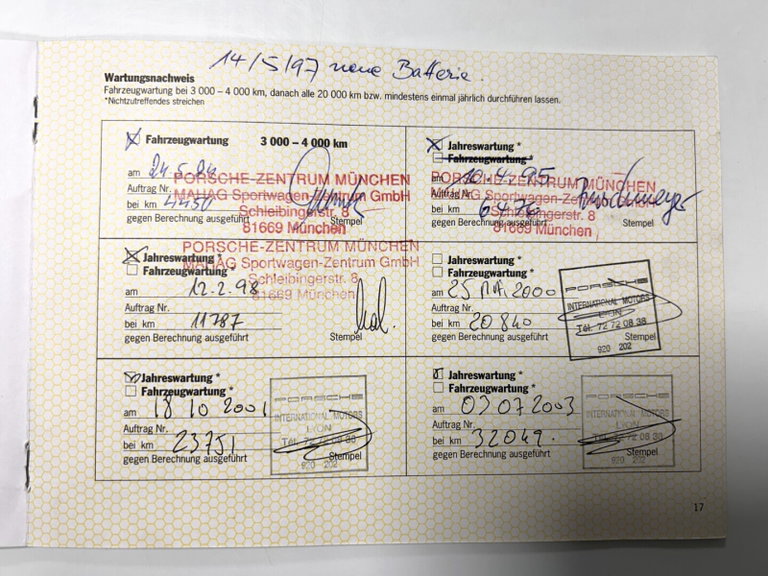 14/5/97 neue Batterie.
Wartungsnachweis
Fahrzeugwartung bei 3 000 – 4 000 km, danach alle 20 000 km bzw. mindestens einmal jährlich durchführen lassen.
*Nichtzutreffendes streichen
Fahrzeugwartung 3 000 – 4 000 km
am 24.5.94
PORSCHE-ZENTRUM MÜNCHEN
Auftrag Nr.
MAHAG Sportwagen-Zentrum GmbH
bei km 4450
Schleibingerstr. 8
gegen Berechnung ausgeführt Stempel
81669 München
Jahreswartung *
Fahrzeugwartung *
am 10.4.95
PORSCHE-ZENTRUM MÜNCHEN
Auftrag Nr.
MAHAG Sportwagen-Zentrum GmbH
bei km 6476
Schleibingerstr. 8
gegen Berechnung ausgeführt Stempel
81669 München
PORSCHE-ZENTRUM MÜNCHEN
Jahreswartung *
MAHAG Sportwagen-Zentrum GmbH
Fahrzeugwartung *
Schleibingerstr. 8
am 12.2.98
81669 München
Auftrag Nr.
bei km 11787
gegen Berechnung ausgeführt Stempel
Jahreswartung *
Fahrzeugwartung *
am 25 2000
Auftrag Nr.
bei km 20840
gegen Berechnung ausgeführt Stempel
PORSCHE
INTERNATIONAL MOTORS
LYON
Tél. 72 72 08 38
920 202
Jahreswartung *
Fahrzeugwartung *
am 18 10 2001
Auftrag Nr.
bei km 23751
gegen Berechnung ausgeführt Stempel
PORSCHE
INTERNATIONAL MOTORS
LYON
Tél. 72 72 08 38
920 202
Jahreswartung *
Fahrzeugwartung *
am 03 07 2003
Auftrag Nr.
bei km 32049.
gegen Berechnung ausgeführt Stempel
PORSCHE
INTERNATIONAL MOTORS
LYON
Tél. 72 72 08 38
920 202
17